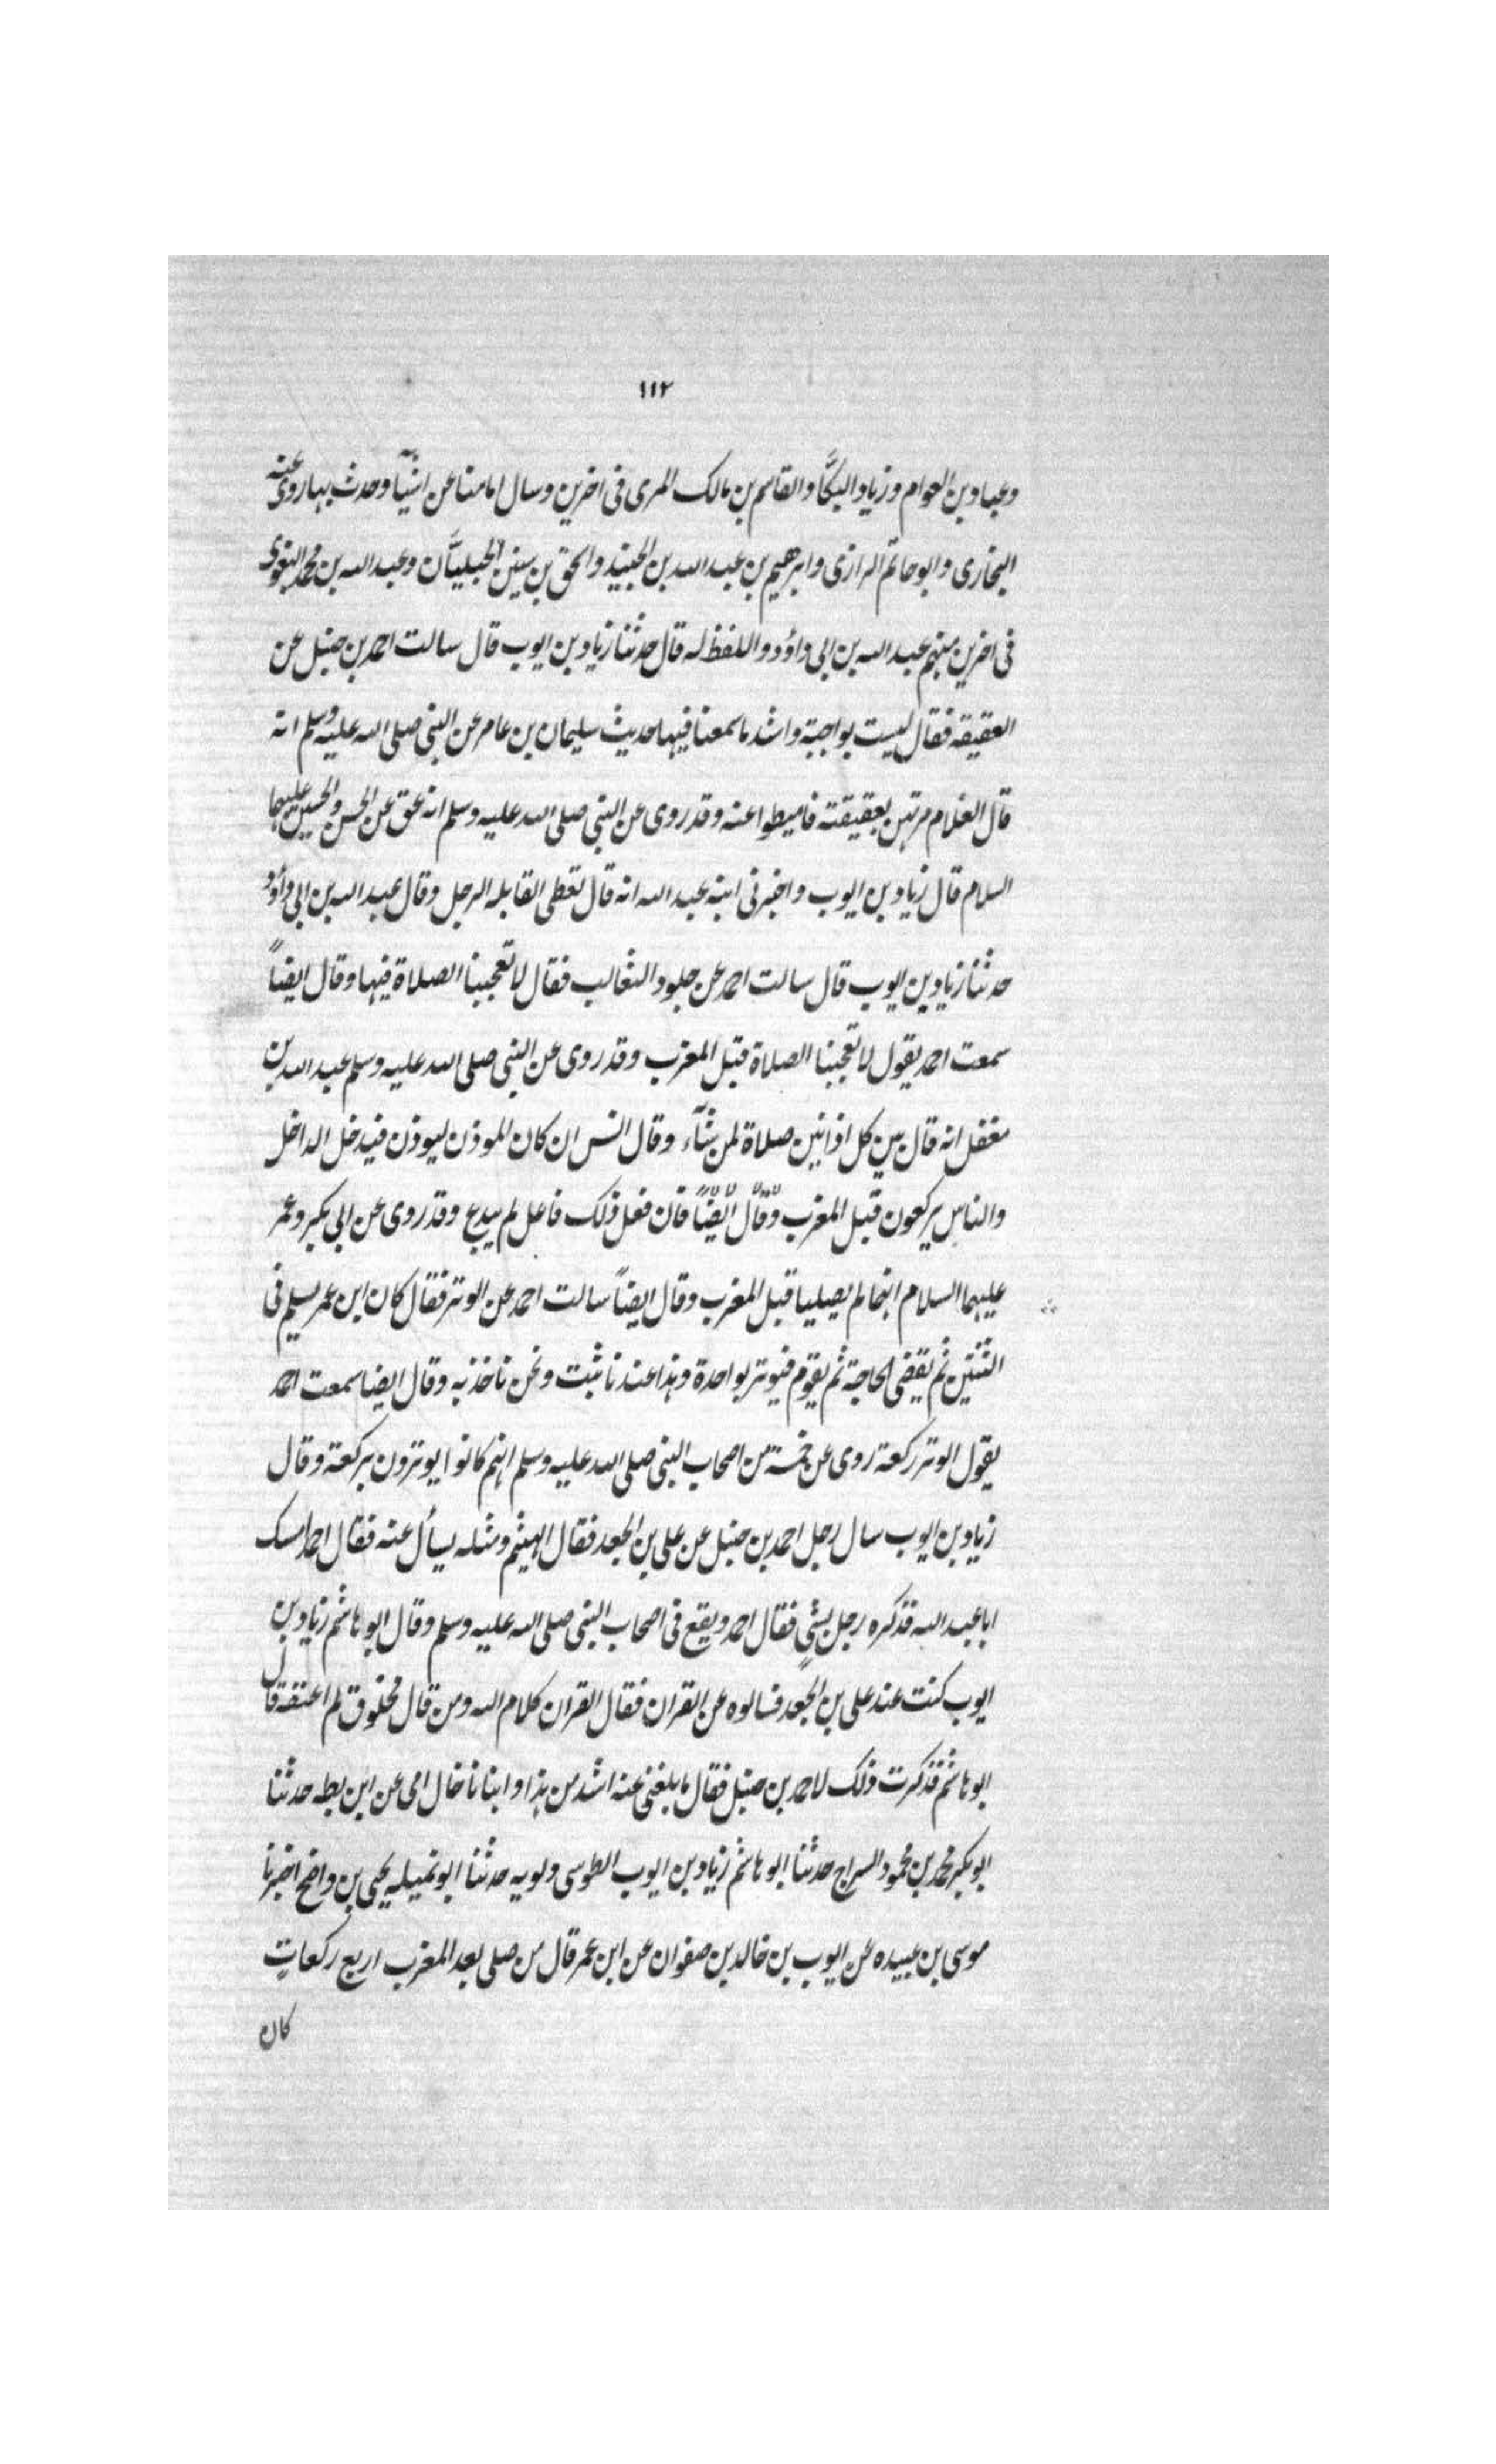 ١١٢
وعباد بن العوام وزياد البكَّا والقاسم بن مالك المرى فى اخرين وسال امامنا عن اشيآ وحدث بها روى عنه
البخارى وابو حاتم الرازى وابرهيم بن عبد الله بن الجنيد واسحق بن سنين الجبليَّان وعبد الله بن محمد البغوى
فى اخرين منهم عبد الله بن ابى داؤد واللفظ له قال حدثنا زياد بن ايوب قال سالت احمد بن حنبل عن
العقيقه فقال ليست بواجبة واشد ما سمعنا فيها حديث سليمان بن عامر عن النبى صلى الله عليه وسلم انه
قال الغلام مرتهن بعقيقته فاميطوا عنه وقد روى عن النبى صلى الله عليه وسلم انه عق عن الحسن والحسين عليهما
السلام قال زياد بن ايوب واخبرنى ابنه عبد الله انه قال تعطى القابله الرجل وقال عبد الله بن ابى داؤد
حدثنا زياد بن ايوب قال سالت احمد عن جلود الثعالب فقال لا تعجبنا الصلاة فيها وقال ايضاً
سمعت احمد يقول لا تعجبنا الصلاة قبل المغرب وقد روى عن النبى صلى الله عليه وسلم عبد الله بن
مغفل انه قال بين كل اذانين صلاة لمن شآء وقال انس ان كان الموذن ليوذن فيدخل الداخل
والناس يركعون قبل المغرب وقال ايضًا فان فعل ذلك فاعل لم يبدع وقد روى عن ابى بكر وعمر
عليهما السلام انهما لم يصليا قبل المغرب وقال ايضاً سالت احمد عن الوتر فقال كان ابن عمر يسلم فى
الثنتين ثم يقضى الحاجة ثم يقوم فيوتر بواحدة وهذا عندنا ثبت ونحن ناخذ به وقال ايضا سمعت احمد
يقول الوتر ركعة روى عن خمسة من اصحاب النبى صلى الله عليه وسلم انهم كانوا يوترون بركعة وقال
زياد بن ايوب سال رجل احمد بن حنبل عن على بن الجعد فقال الهيثم ومثله يسأل عنه فقال احمد امسك
ابا عبد الله فذكره رجل بشئ فقال احمد ويقع فى اصحاب النبى صلى الله عليه وسلم وقال ابو هاشم زياد بن
ايوب كنت عند على بن الجعد فسالوه عن القران فقال القران كلام الله ومن قال مخلوق لم اعنفه قال
ابو هاشم فذكرت ذلك لاحمد بن حنبل فقال ما بلغنى عنه اشد من هذا وانبانا خال امى عن ابن بطه حدثنا
ابو بكر محمد بن محمود السراج حدثنا ابو هاشم زياد بن ايوب الطوسى دلويه حدثنا ابو تميله يحيى بن واضح اخبرنا
موسى بن عبيده عن ايوب بن خالد بن صفوان عن ابن عمر قال من صلى بعد المغرب اربع ركعات
كان